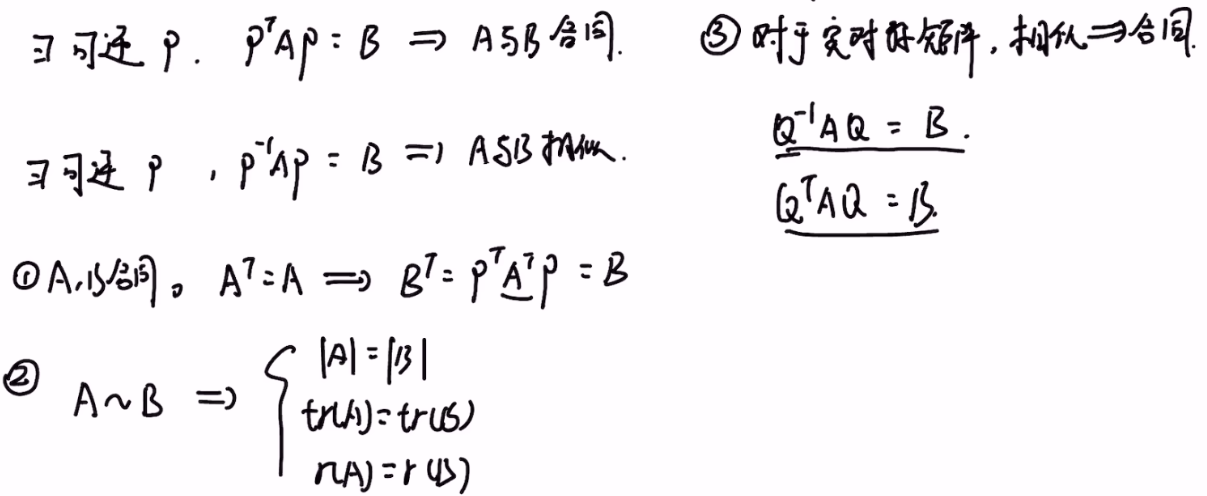 ∃可逆 P. PᵀAP = B ⇒ A与B合同.
∃可逆 P , P⁻¹AP = B ⇒ A与B相似.
① A,B合同。 Aᵀ=A ⇒ Bᵀ=PᵀAᵀP =B
② A~B ⇒ { |A|=|B|
tr(A)=tr(B)
r(A)=r(B)
③ 对于实对称矩阵, 相似⇒合同.
Q⁻¹AQ = B.
QᵀAQ = B.